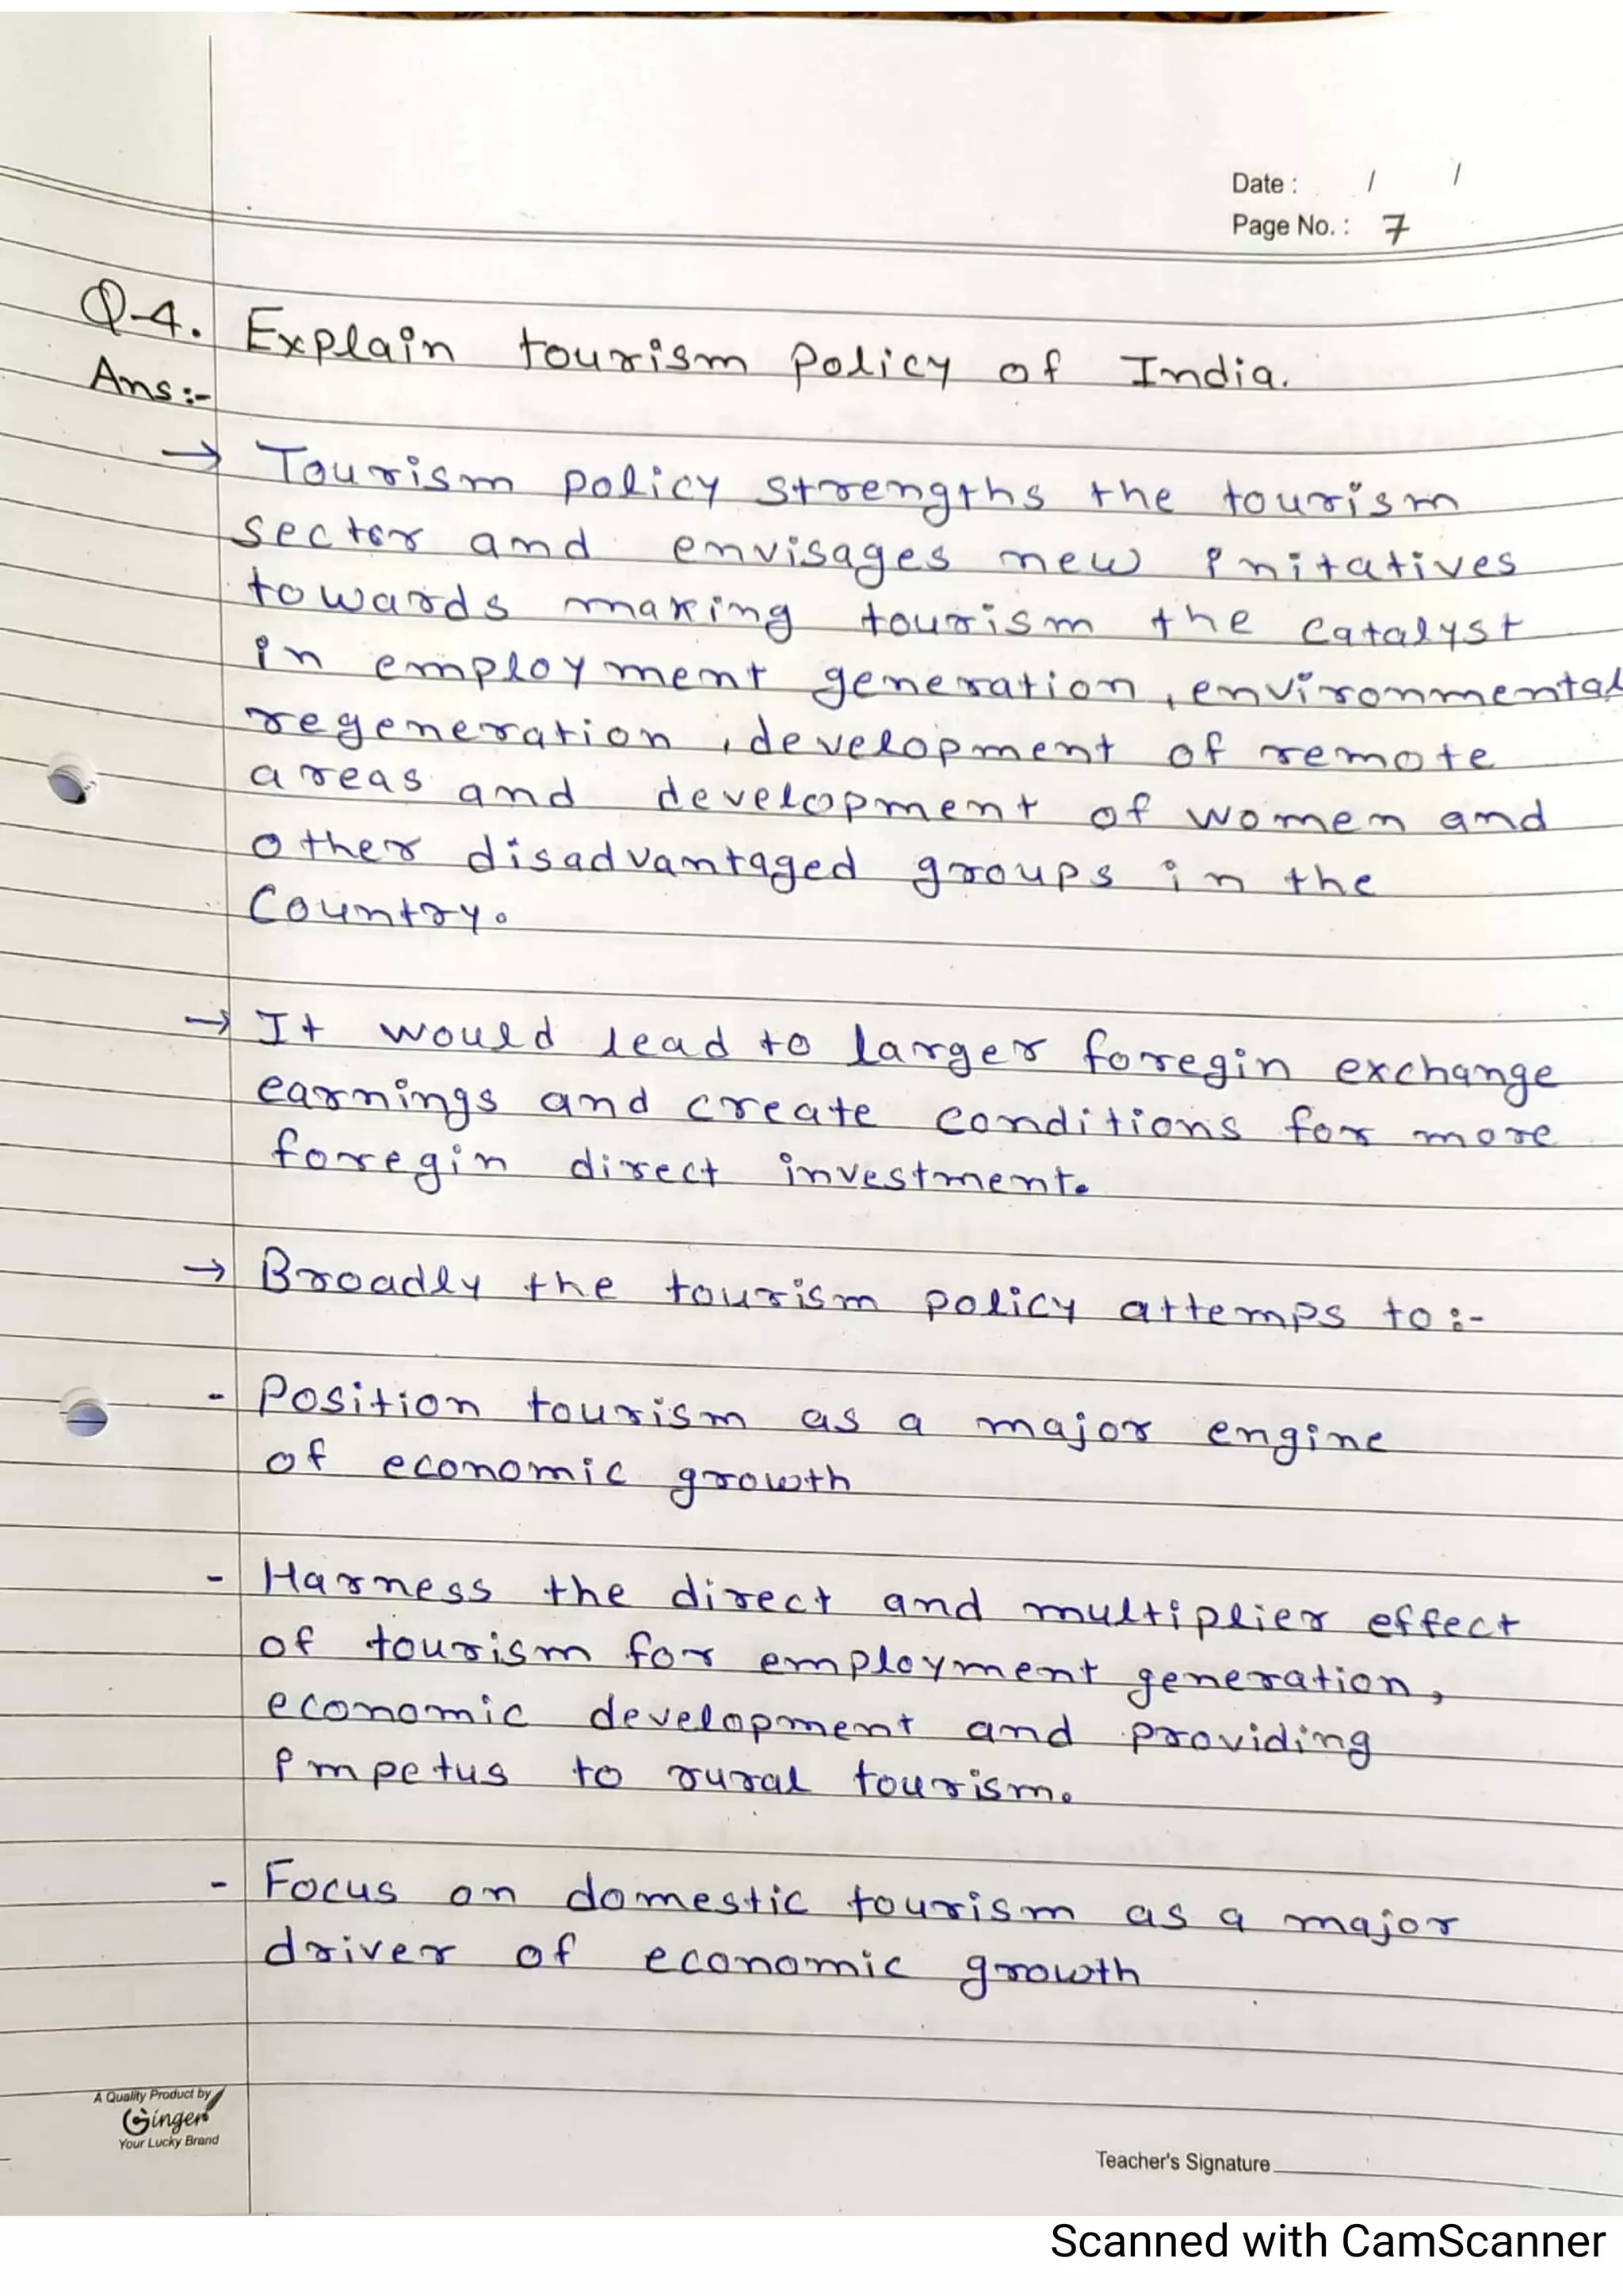 Date : / /
Page No. : 7
Q-4. Explain tourism policy of India.
Ans :-
→ Tourism policy strengths the tourism
sector and envisages new initatives
towards making tourism the catalyst
in employment generation, environmental
regeneration, development of remote
areas and development of women and
other disadvantaged groups in the
Country.
→ It would lead to larger foregin exchange
earnings and create conditions for more
foregin direct investment.
→ Broadly the tourism policy attemps to :-
- Position tourism as a major engine
of economic growth
- Harness the direct and multiplier effect
of tourism for employment generation,
economic development and providing
impetus to rural tourism.
- Focus on domestic tourism as a major
driver of economic growth
A Quality Product by
Ginger
Your Lucky Brand
Teacher's Signature
Scanned with CamScanner